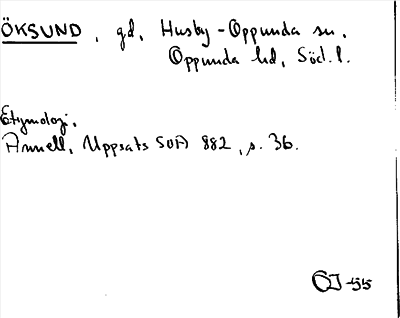 ÖKSUND, gd, Husby-Oppunda sn,
Oppunda hd, Södl.l.
Etymologi.
Annell, Uppsats SOA 882, s. 36.
EJ -55